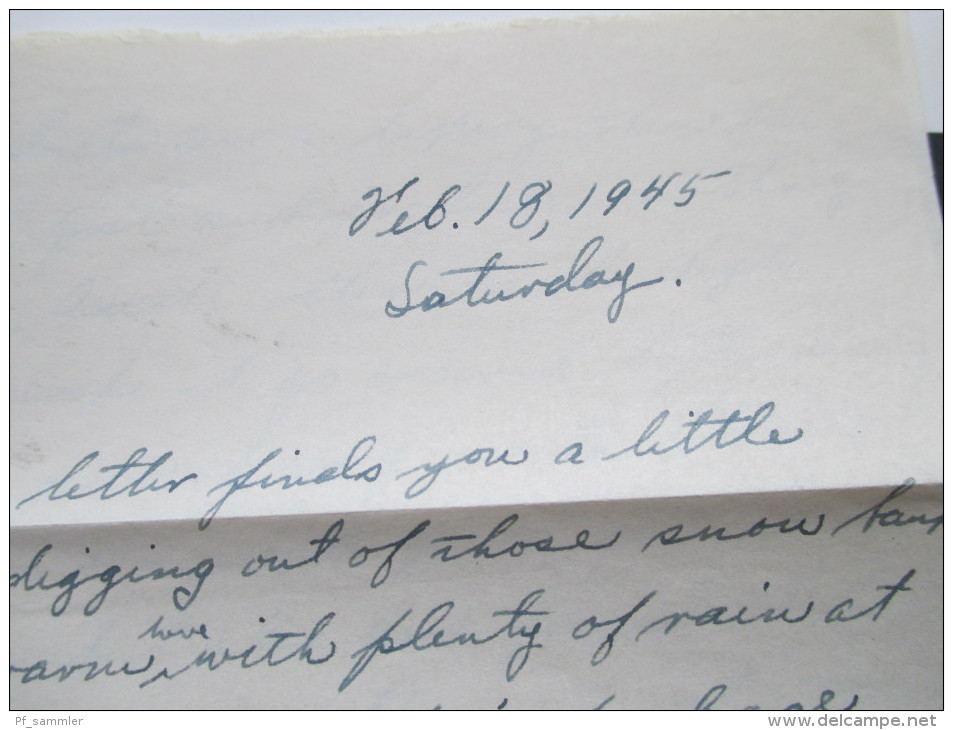 Feb. 18, 1945
Saturday.
letter finds you a little
digging out of those snow
here
with plenty of rain at
Pf_sammler
www.delcampe.net